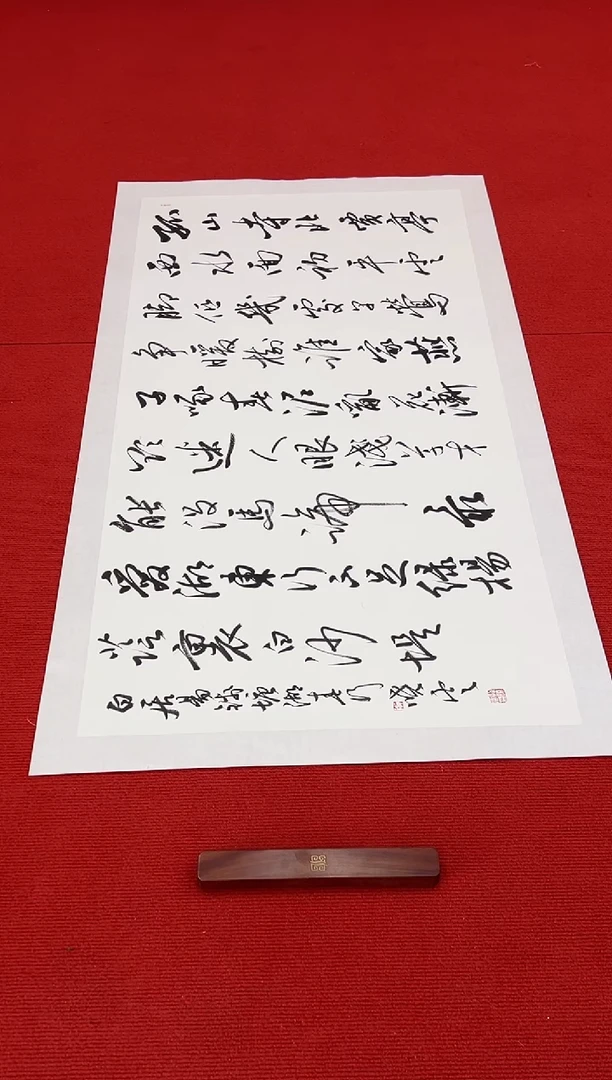 孤山寺北賈亭
西水面初平雲
脚低幾處早鶯
争暖樹誰家燕
子啄春泥亂花漸
欲迷人眼淺草才
能没馬蹄 最
愛湖東行不足綠楊
蔭裏白沙堤
白居易詩塘湖春行